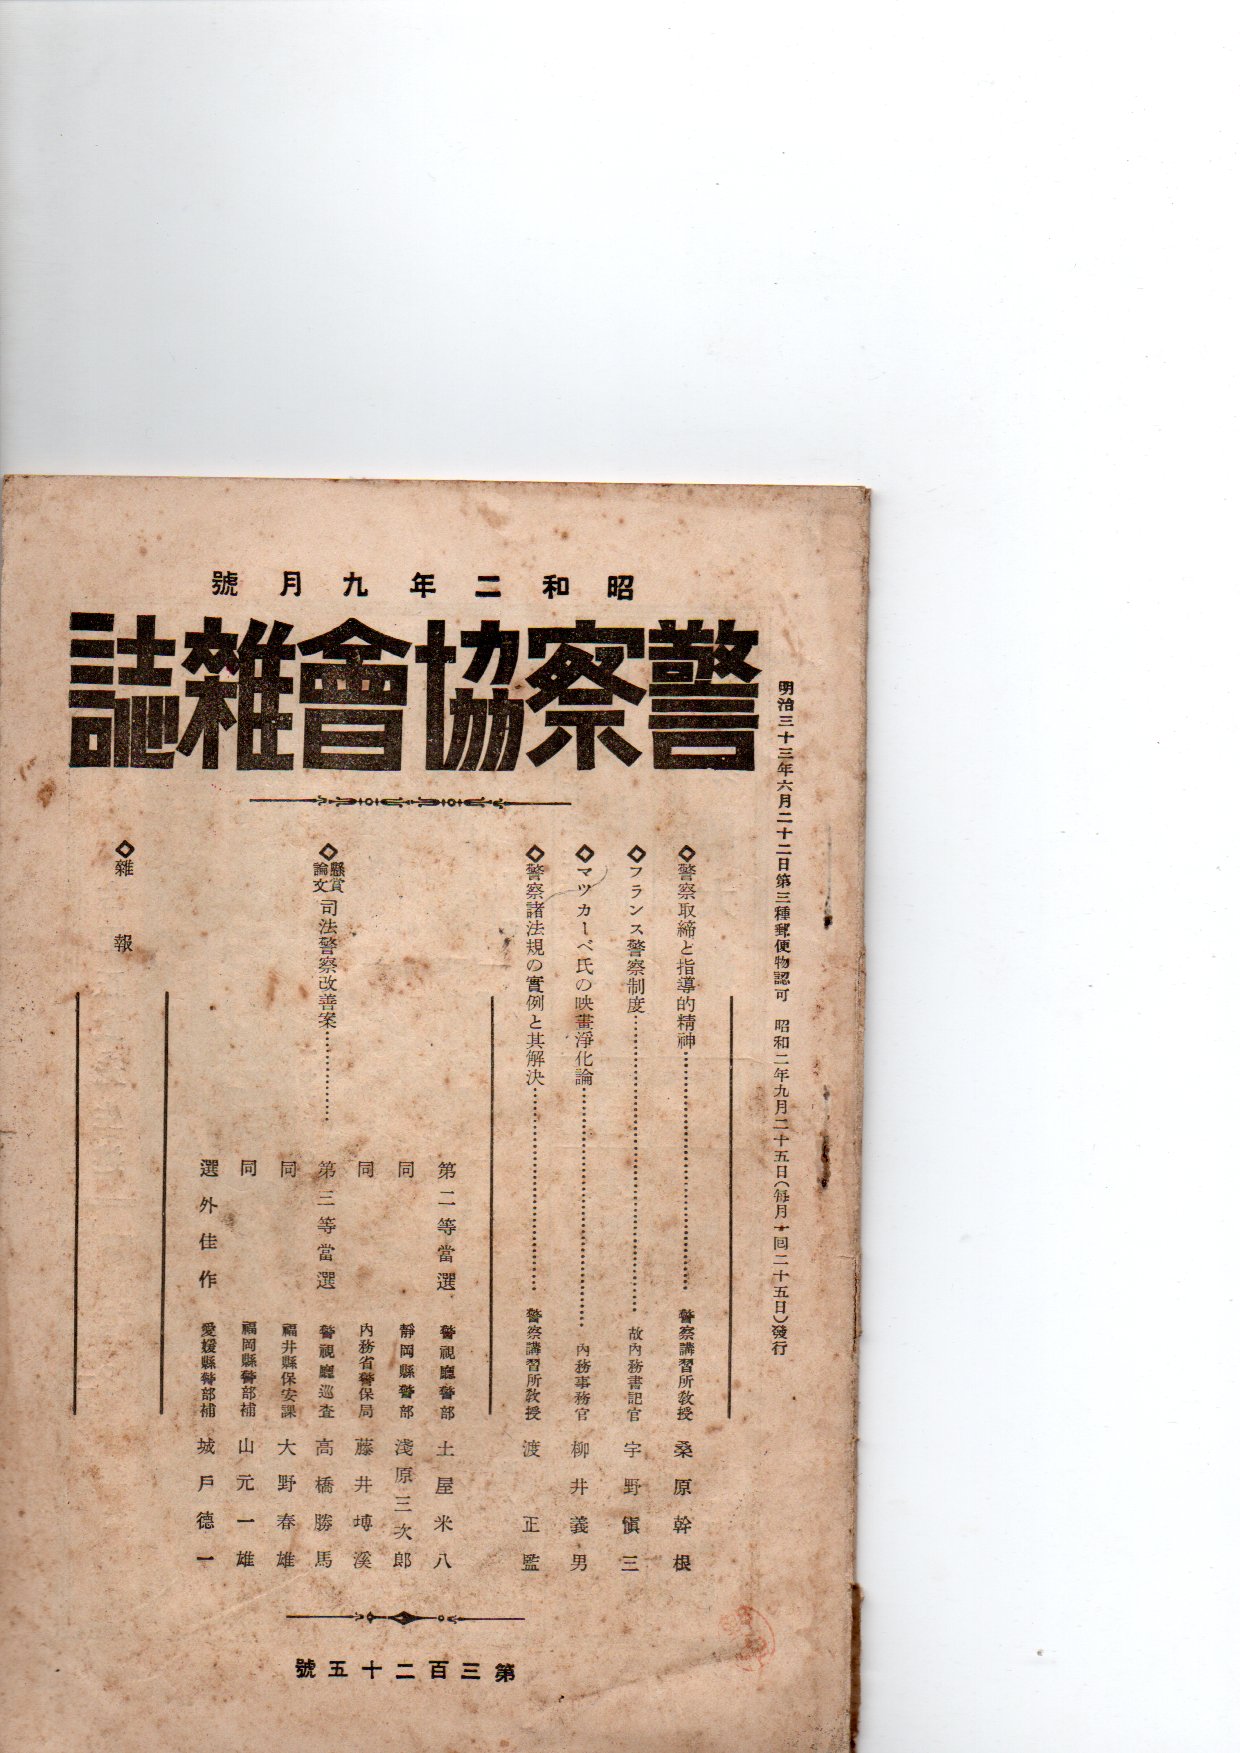 昭和二年九月號
警察協會雜誌
明治三十三年六月二十二日第三種郵便物認可 昭和二年九月二十五日(每月一回二十五日)發行
◇警察取締と指導的精神…………警察講習所敎授 桑原幹根
◇フランス警察制度…………故內務書記官 宇野愼三
◇マツカーベ氏の映畫淨化論…………內務事務官 柳井義男
◇警察諸法規の實例と其解決…………警察講習所敎授 渡正監
◇懸賞論文 司法警察改善案…………
第二等當選 警視廳警部 土屋米八
同 靜岡縣警部 淺原三次郎
同 內務省警保局 藤井塼溪
第三等當選 警視廳巡査 高橋勝馬
同 福井縣保安課 大野春雄
同 福岡縣警部補 山元一雄
選外佳作 愛媛縣警部補 城戶德一
◇雜報
第三百二十五號